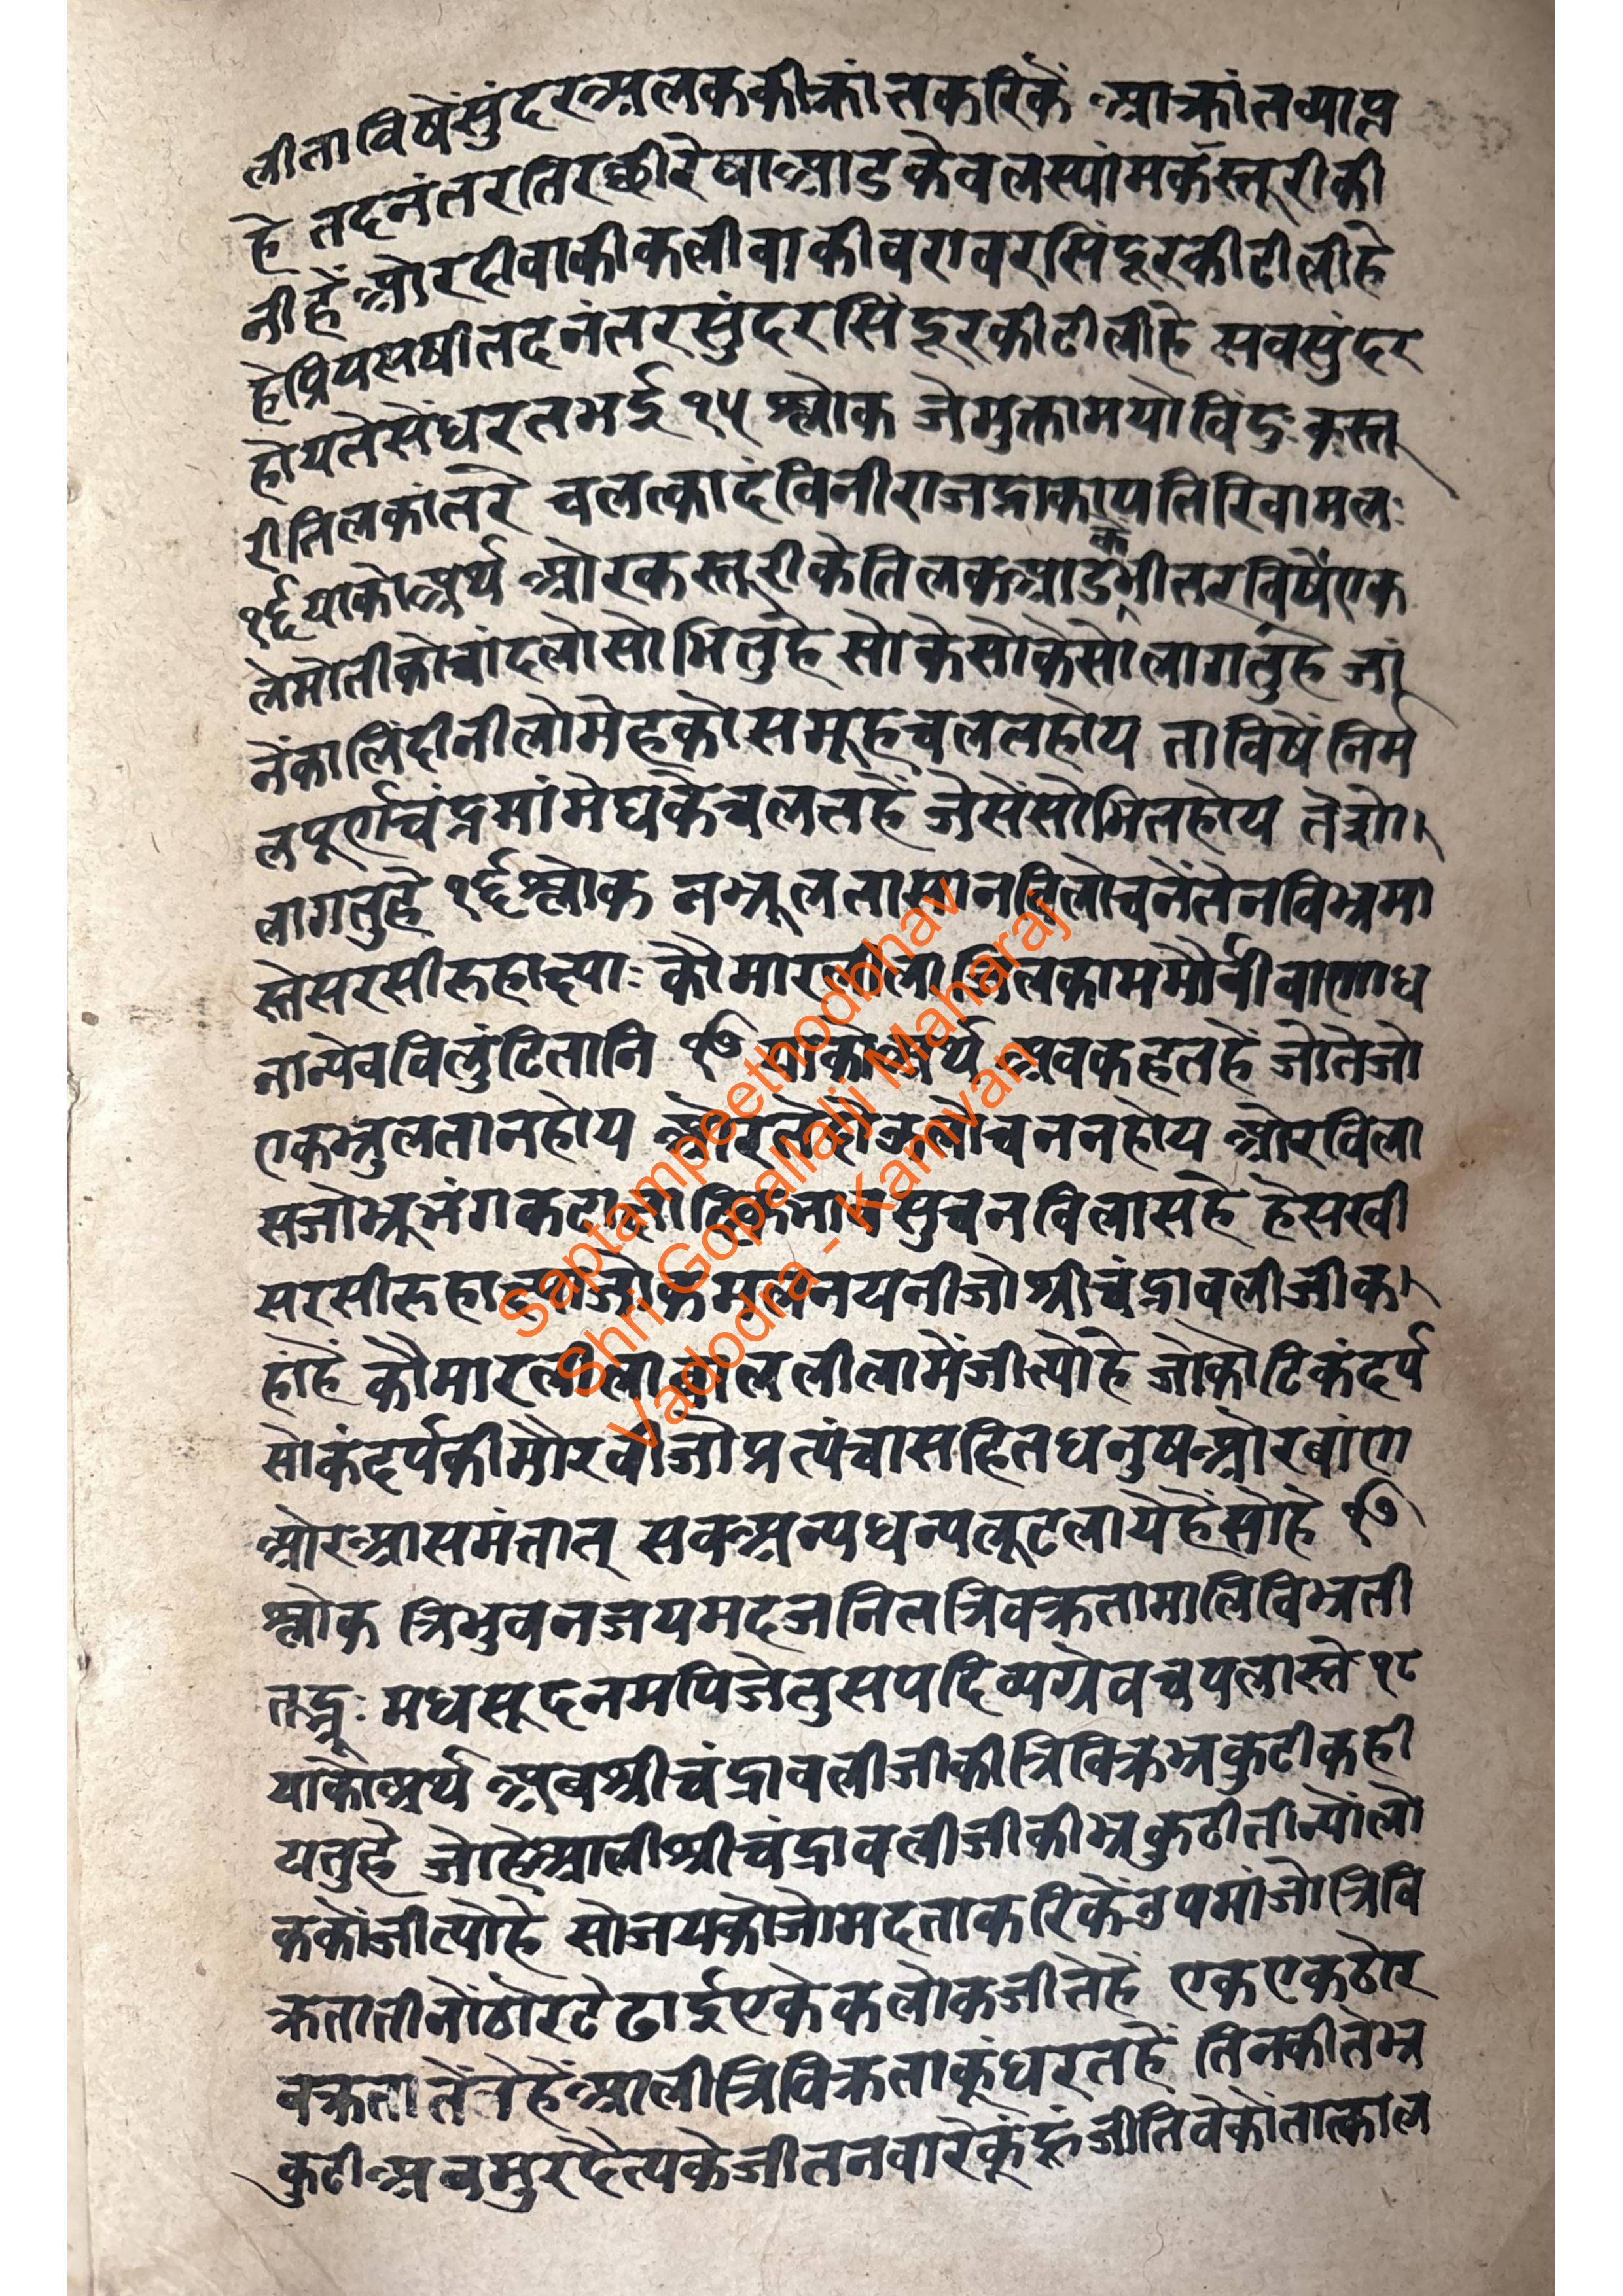 लीताविषेंसुंदरअलककीक्रांतकरिकें आक्रांतव्याप्त
हे तदनंतरतिरछीरेषाआडकेवलस्यांमकस्तूरीकी
नीहें ओरदीवाकीकलीवाकीवरावरसिंदूरकीटीलीहे
हेप्रियसषीतदनंतरसुंदरसिंदूरकीटीलीहे सवसुंदर
होयतेसेंघरतभई १५ श्लोक जेमुक्तामयोविंदुः कस्तू
रीतिलकांतरे चलत्कादंविनीराजद्राकापतिरिवामलः
१६ याकोअर्थ ओरकस्तूरीकेतिलकआडकेभीतरविषेंएक
लेमोतीकोचांदलोसोभितुहे सोकेसोकेसोलागतुहे जां
नेंकालिंदीनीलोमेहकोसमूहचलतहोय ताविषेंनिर्म
लपूर्णचंद्रमांमेघकेचलतहें जेसेंसोभितहोय तेसो
लागतुहे १६ श्लोक नभ्रूलतासानविलोचनेंतेनविभ्रमा
स्तेसरसीरुहाक्ष्याः कौमारलीलाजितकाममौर्वीवाणाध
नान्येवविलुंटितानि १७ याकोअर्थ अवकहतहें जोतेजो
एकभ्रुलतानहोय ओरतेदोऊलोचननहोय ओरविला
सजोभ्रूभंगकटाक्षादिकभावसुचनविलासहे हेसखी
सरसीरुहाक्ष्याजोकमलनयनीजोश्रीचंद्रावलीजीक
हांहें कौमारलीलाबाललीलामेंजीत्योहे जोकोटिकंदर्प
सोकंदर्पकीमौरवीजोप्रत्यंचासहितधनुषओरबांण
ओरआसमंत्तात् सवअन्यधन्यलूटलायेहेंसोहे १७
श्लोक त्रिभुवनजयमदजनितत्रिवक्रतामालिविभ्रती
तद्भ्रूः मधसूदनमपिजेतुसपदिव्यग्रेवचपलास्ते १८
याकोअर्थ अबश्रीचंद्रावलीजीकीत्रिविक्रभ्रकुटीकही
यतुहे जोहेआलीश्रीचंद्रावलीजीकीभ्रकुटीतीन्योंलो
ककोंजीत्योहे सोजयकोजोमदताकरिकेंउपमांजोत्रिवि
क्रतातीनोंठोरटेढाईएकेकलोकजीतेहें एकएकठोर
वक्रतातें हेंआलीत्रिविक्रताकूंधरतहें तिनकीतेभ्र
कुटीअवमुरदैत्यकेजीतनवारेकूंहूंजीतिवेकोंतात्काल
Saptampeethodbhav
Shri Gopallalji Maharaj
Vadodra - Kamvan